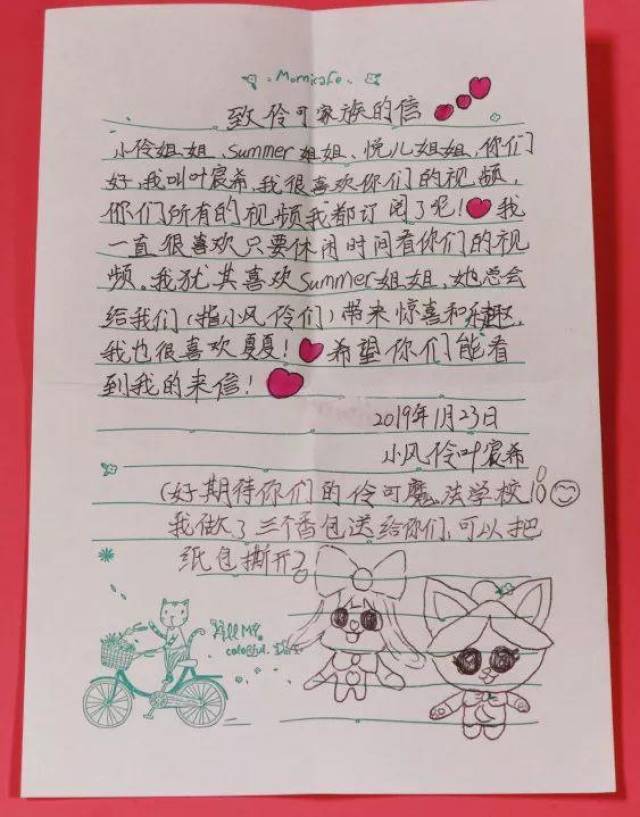 Mornicafe.
致伶可家族的信
小伶姐姐、Summer姐姐、悦儿姐姐,你们
好,我叫叶宸希,我很喜欢你们的视频,
你们所有的视频我都订阅了呢!我
一直很喜欢只要休闲时间看你们的视
频。我犹其喜欢Summer姐姐,她总会
给我们(指小风伶们)带来惊喜和乐趣,
我也很喜欢夏夏!希望你们能看
到我的来信!
2019年11月23日
小风伶叶宸希
(好期待你们的伶可魔法学校
我做了三个香包送给你们,可以把
纸包撕开
colorful.